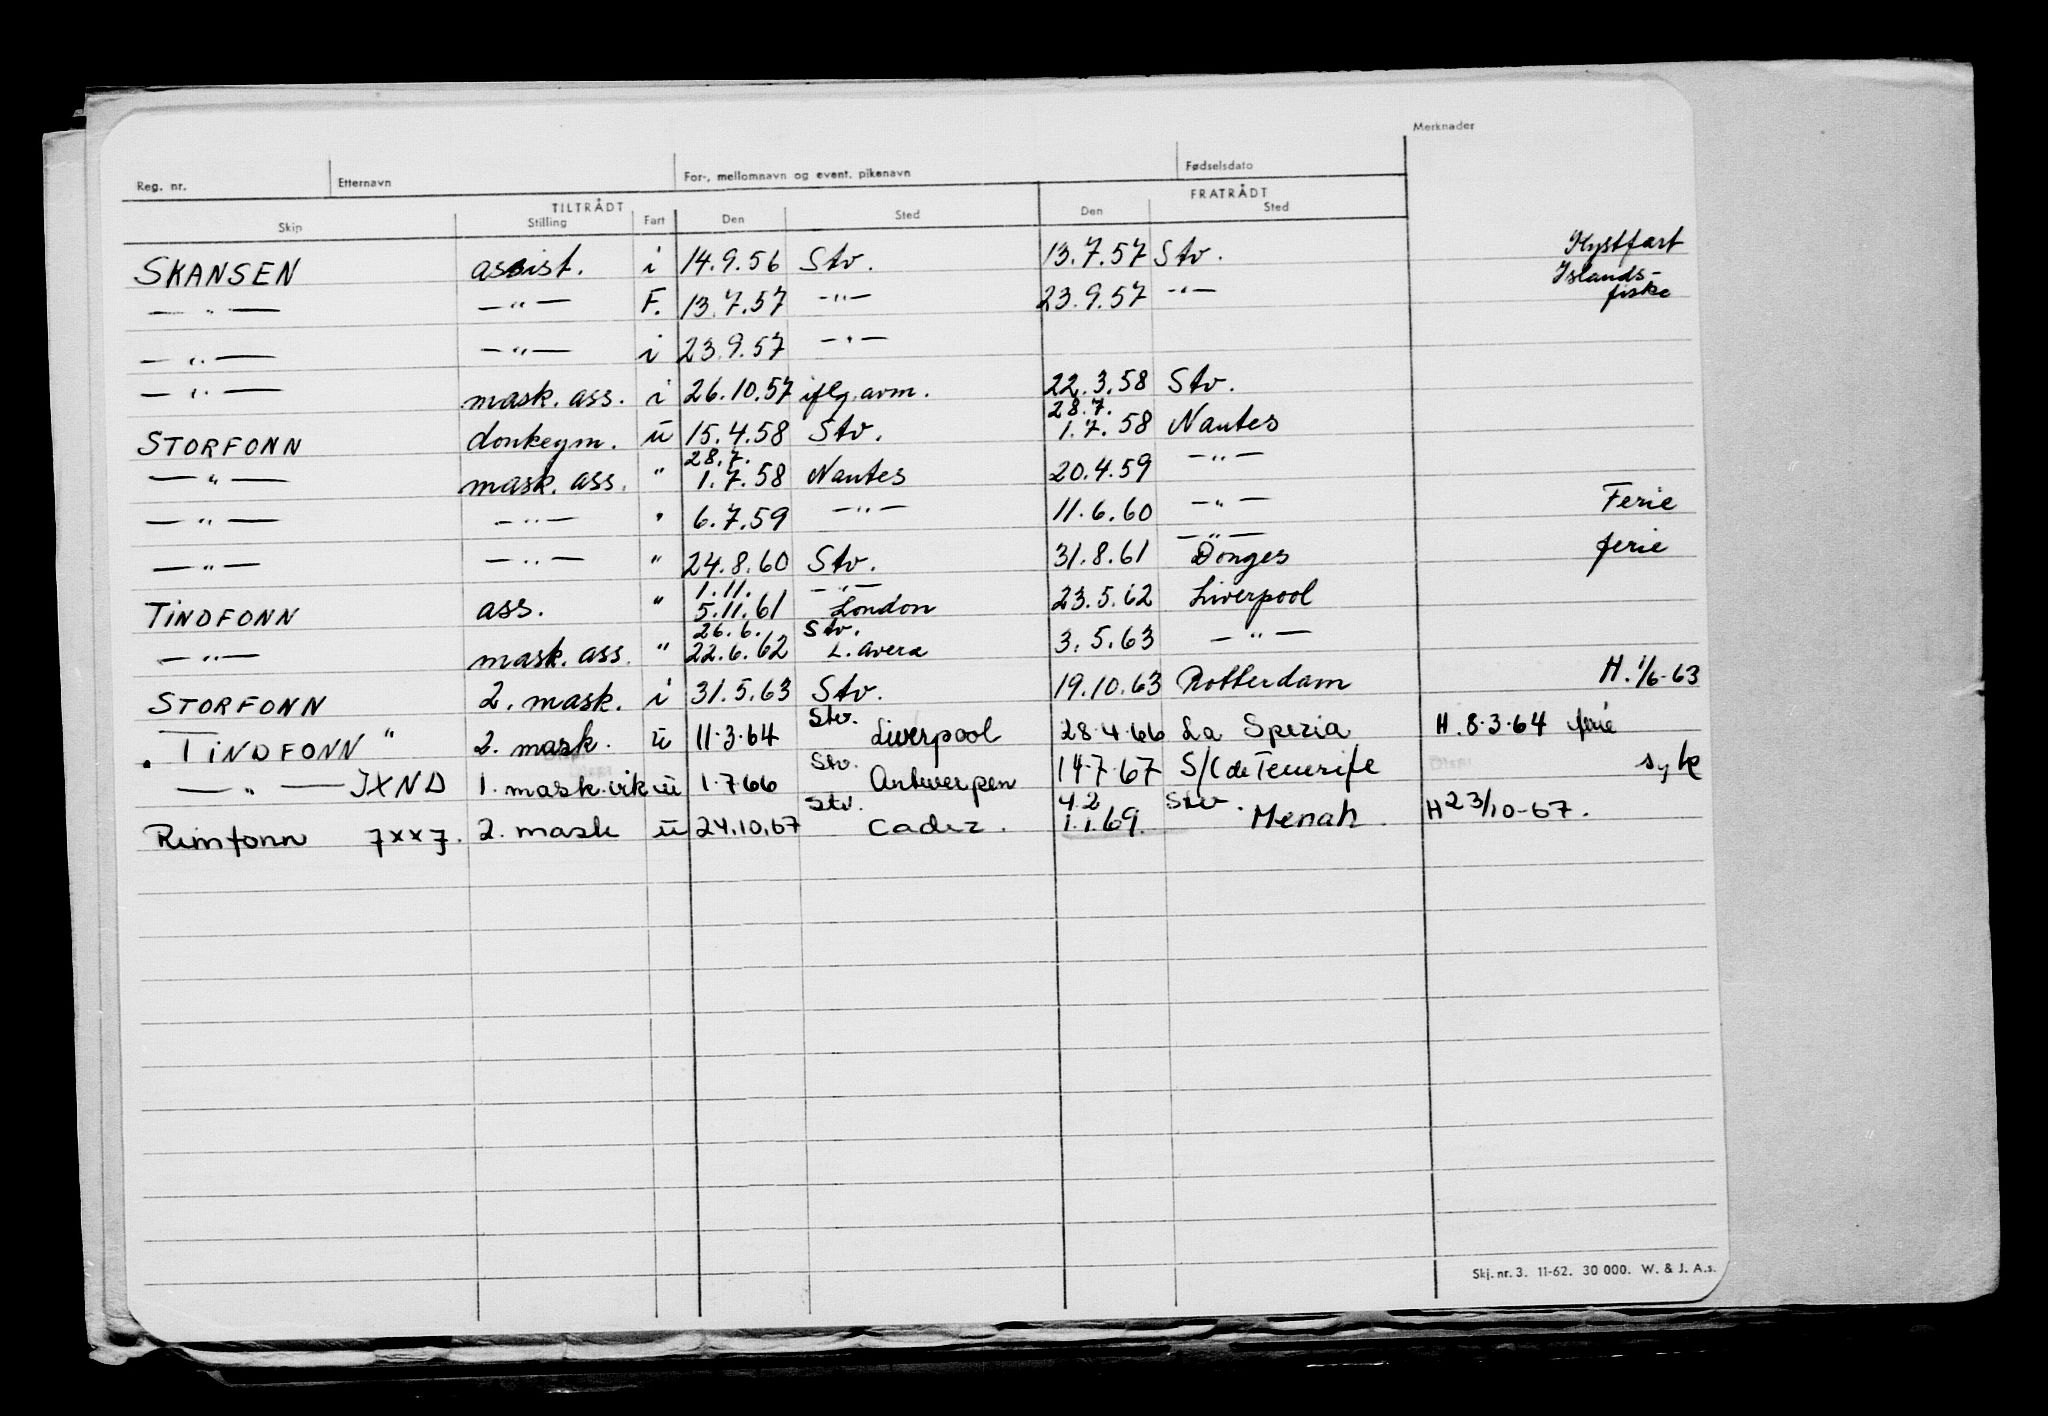 Merknader
Reg. nr. Etternavn For-, mellomnavn og event. pikenavn Fødselsdato
TILTRÅDT FRATRÅDT
Skip Stilling Fart Den Sted Den Sted
SKANSEN assist. i 14.9.56 Stv. 13.7.57 Stv. Kystfart
—"— —"— F. 13.7.57 —"— 23.9.57 —"— Islands-
fiske
—"— —"— i 23.9.57 —"—
—"— mask. ass. i 26.10.57 iflg. avm. 22.3.58 Stv.
28.7.
STORFONN donkeym. ü 15.4.58 Stv. 1.7.58 Nantes
28.7.
—"— mask. ass. " 1.7.58 Nantes 20.4.59 —"—
—"— —"— " 6.7.59 —"— 11.6.60 —"— Ferie
—"—
—"— —"— " 24.8.60 Stv. 31.8.61 Donges ferie
1.11. —"—
TINDFONN ass. " 5.11.61 London 23.5.62 Liverpool
26.6. Stv.
—"— mask. ass. " 22.6.62 3.5.63 —"—
STORFONN 2. mask. i 31.5.63 Stv. 19.10.63 Rotterdam H. 1/6-63
Stv.
TINDFONN " 2. mask. ü 11.3.64 Liverpool 28.4.66 La Spezia H. 8.3.64 ferie
Stv.
—"— JXND 1. mask. vik ü 1.7.66 Antwerpen 14.7.67 S/C de Tenerife syk
Stv. 4.2 Stv.
Rimfonn 7××7. 2. mask ü 24.10.67 Cadiz. 1.1.69. Menah. H 23/10-67.
Skj. nr. 3. 11-62. 30 000. W. & J. A.s.